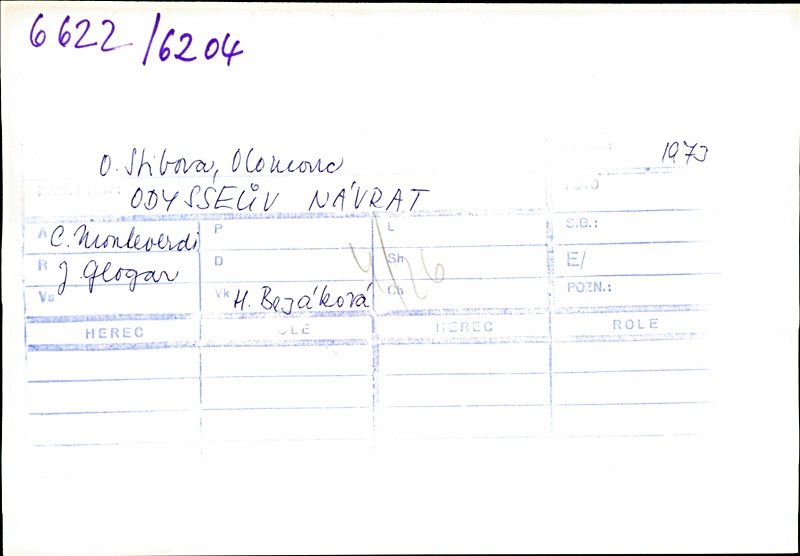 6622/6204
O. Stibora, Olomouc 1973
ODYSSEŮV NÁVRAT
A C. Monteverdi P L S.G.:
R J. Glogar D Sh E/
Vs Vk H. Bezáková Ch POZN.:
4/26
HEREC HEREC ROLE